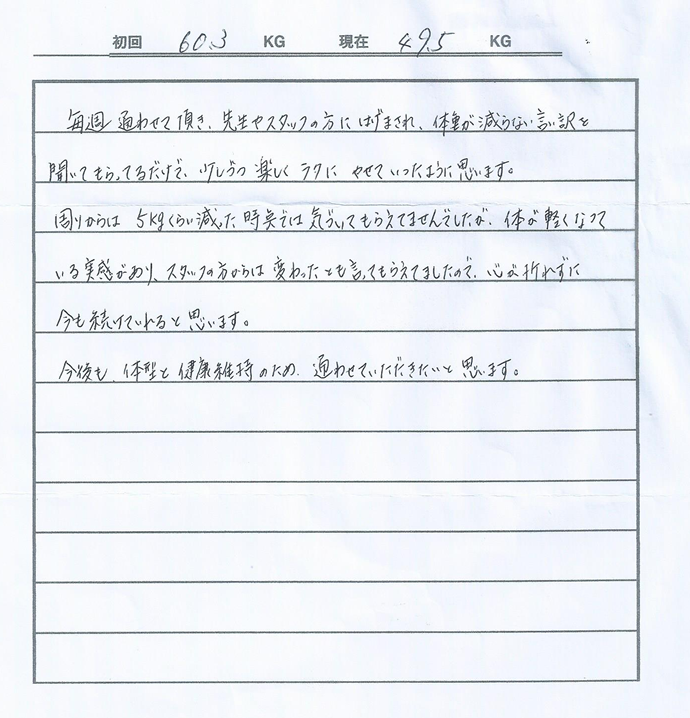 初回 60.3 KG 現在 49.5 KG
毎週 通わせて頂き、先生やスタッフの方に はげまされ、体重が減らない言い訳を
聞いてもらってるだけで、少しづつ 楽しく ラクに やせていったように思います。
周りからは 5kgくらい減った時点では気づいてもらえてませんでしたが、体が軽くなって
いる実感があり、スタッフの方からは変わったとも言ってもらえてましたので、心が折れずに
今も続けていれると思います。
今後も、体型と健康維持のため、通わせていただきたいと思います。